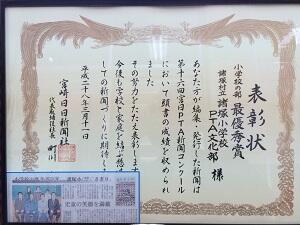 表彰状
小学校の部
最優秀賞
諸塚村立諸塚小学校
PTA文化部 様
あなた方が編集・発行した新聞は
第十六回宮日PTA新聞コンクール
において頭書の成績を収められ
ました
その努力をたたえ表彰します
今後も学校と家庭を結ぶ
しての新聞づくりに期待しま
平成二十八年三月十一日
宮崎日日新聞社
代表取締役社長 町川
児童の笑顔を満載